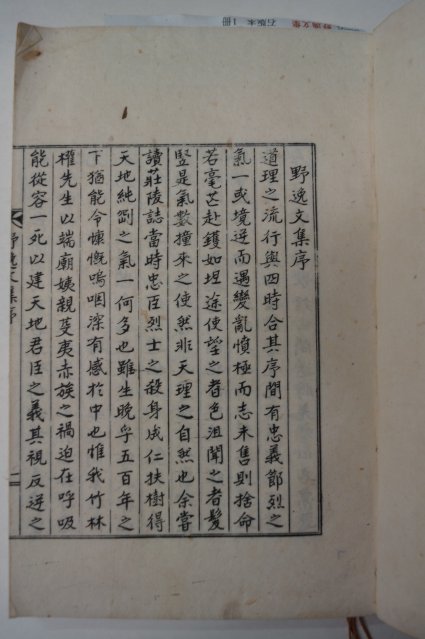 野逸文集序
道理之流行與四時合其序間有忠義節烈之
氣一或境逆而遇變亂憤極而志未售則捨命
若毫芒赴鑊如坦途使望之者色沮聞之者髮
竪是氣數撞來之使然非天理之自然也余嘗
讀莊陵誌當時忠臣烈士之殺身成仁扶樹得
天地純剛之氣一何多也雖生晚乎五百年之
下猶能令慷慨嗚咽深有感於中也惟我竹林
權先生以端廟姨親芟夷赤族之禍迫在呼吸
能從容一死以建天地君臣之義其視反逆之
野逸文集序
一